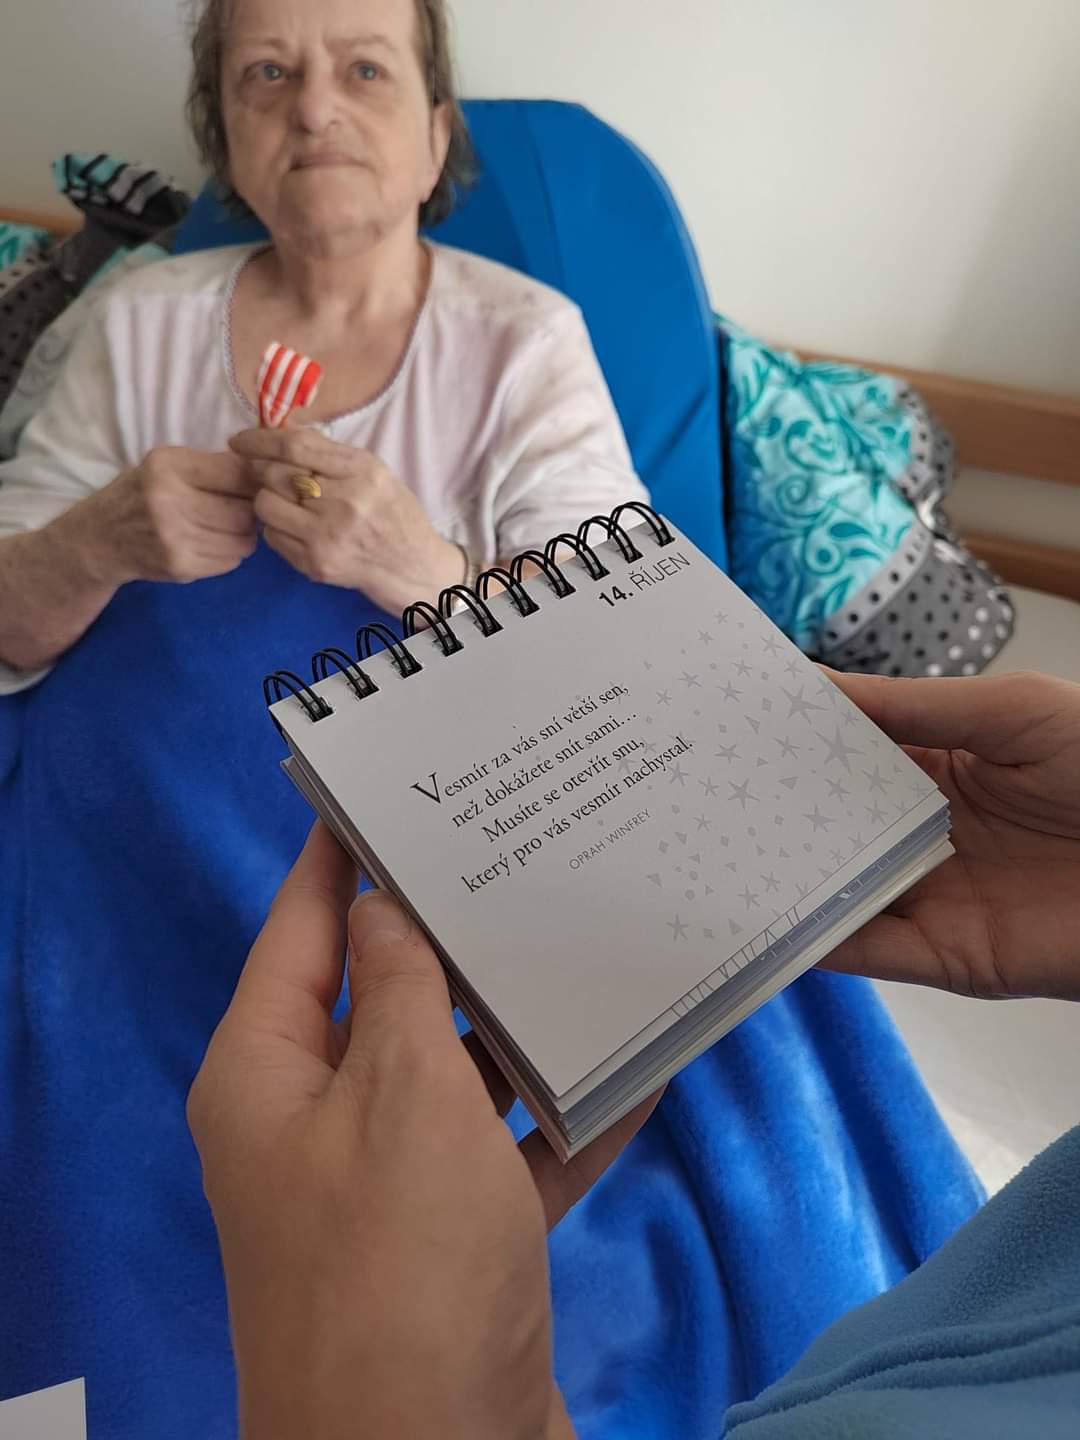 14. ŘÍJEN
Vesmír za vás sní větší sen,
než dokážete snít sami...
Musíte se otevřít snu,
který pro vás vesmír nachystal.
OPRAH WINFREY